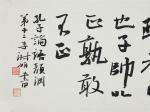 也子帥以
正孰敢
不正
孔子論語顏淵
第十二